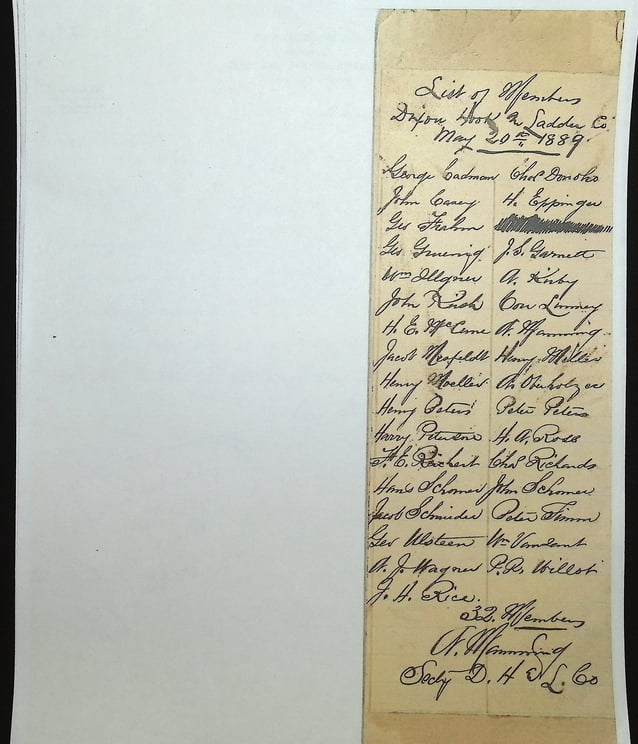 List of Members
Dixon Hook & Ladder Co.
May 20th 1889.
George Cadman Chas Donoho
John Casey H. Eppinger
Geo Frahm
Geo Gruening J. S. Garnett
Wm Illgner A. Kirby
John Kash Con Linney
H. E. McCune A. Manning
Jacob Neafeldt Henry Miller
Henry Moeller A. Oberholzer
Henry Peters Peter Peters
Harry Peterson H. A. Rose
F. E. Reichert Chas Richards
Hans Schomer John Schomer
Jacob Schnieder Peter Timm
Geo Ulsteen Wm Vansant
A. J. Wagner P. R. Willot
J. H. Rice.
32. Members
A. Manning
Secty D. H & L. Co